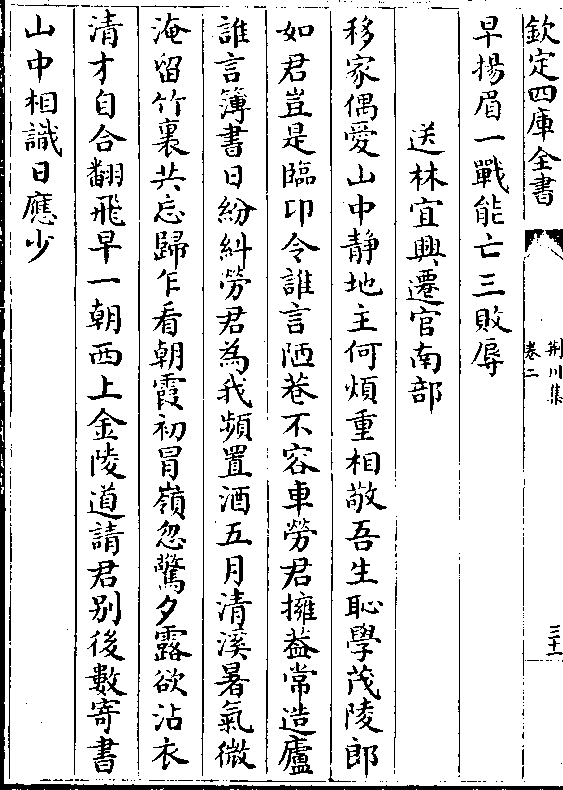 欽定四庫全書
荆川集
卷二
三十一
早揚眉一戰能亡三敗辱
送林宜興遷官南部
移家偶愛山中静地主何煩重相敬吾生恥學茂陵郎
如君豈是臨卬令誰言陋巷不容車勞君擁葢常造廬
誰言簿書日紛糾勞君為我頻置酒五月清溪暑氣微
淹留竹裏共忘歸乍看朝霞初冒嶺忽驚夕露欲沾衣
清才自合翻飛早一朝西上金陵道請君别後數寄書
山中相識日應少